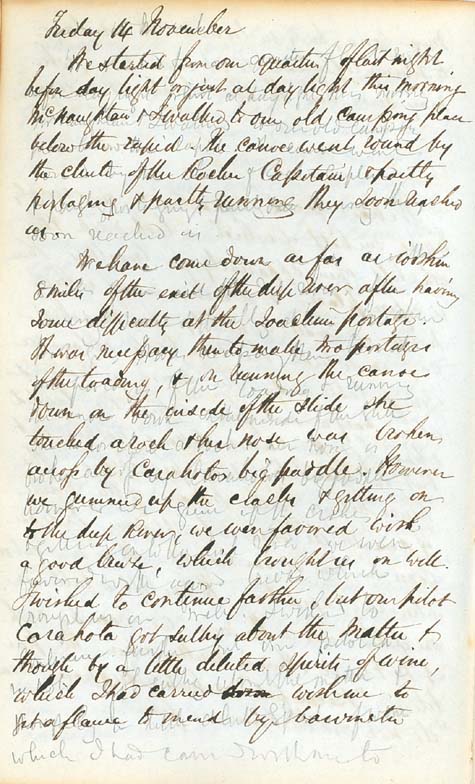 Friday 14 November
We started from our quarters of last night
before day light or just at day light this morning
McNaughtan & I walked to our old camping place
below the rapid. The canoe went round by
the chute of the Rocher Capitain & partly
portaging & partly running they soon reached
us
We have come down as far as within
8 miles of the exit of the deep River after having
some difficulty at the Joachim portage.
It was necessary there to make two portages
of the loading, & in running the canoe
down on the inside of the slide she
touched a rock & her nose was broken
across by Carahotos big paddle. However
we gummed up the cracks & getting on
to the deep River, we were favored with
a good breeze, which brought us on well.
I wished to continue farther, but our pilot
Carahota got sulky about the matter &
though by a little diluted spirits of wine,
which I had carried with me to
a flame to mend my barometer
soon reached us
which I had carried with me to